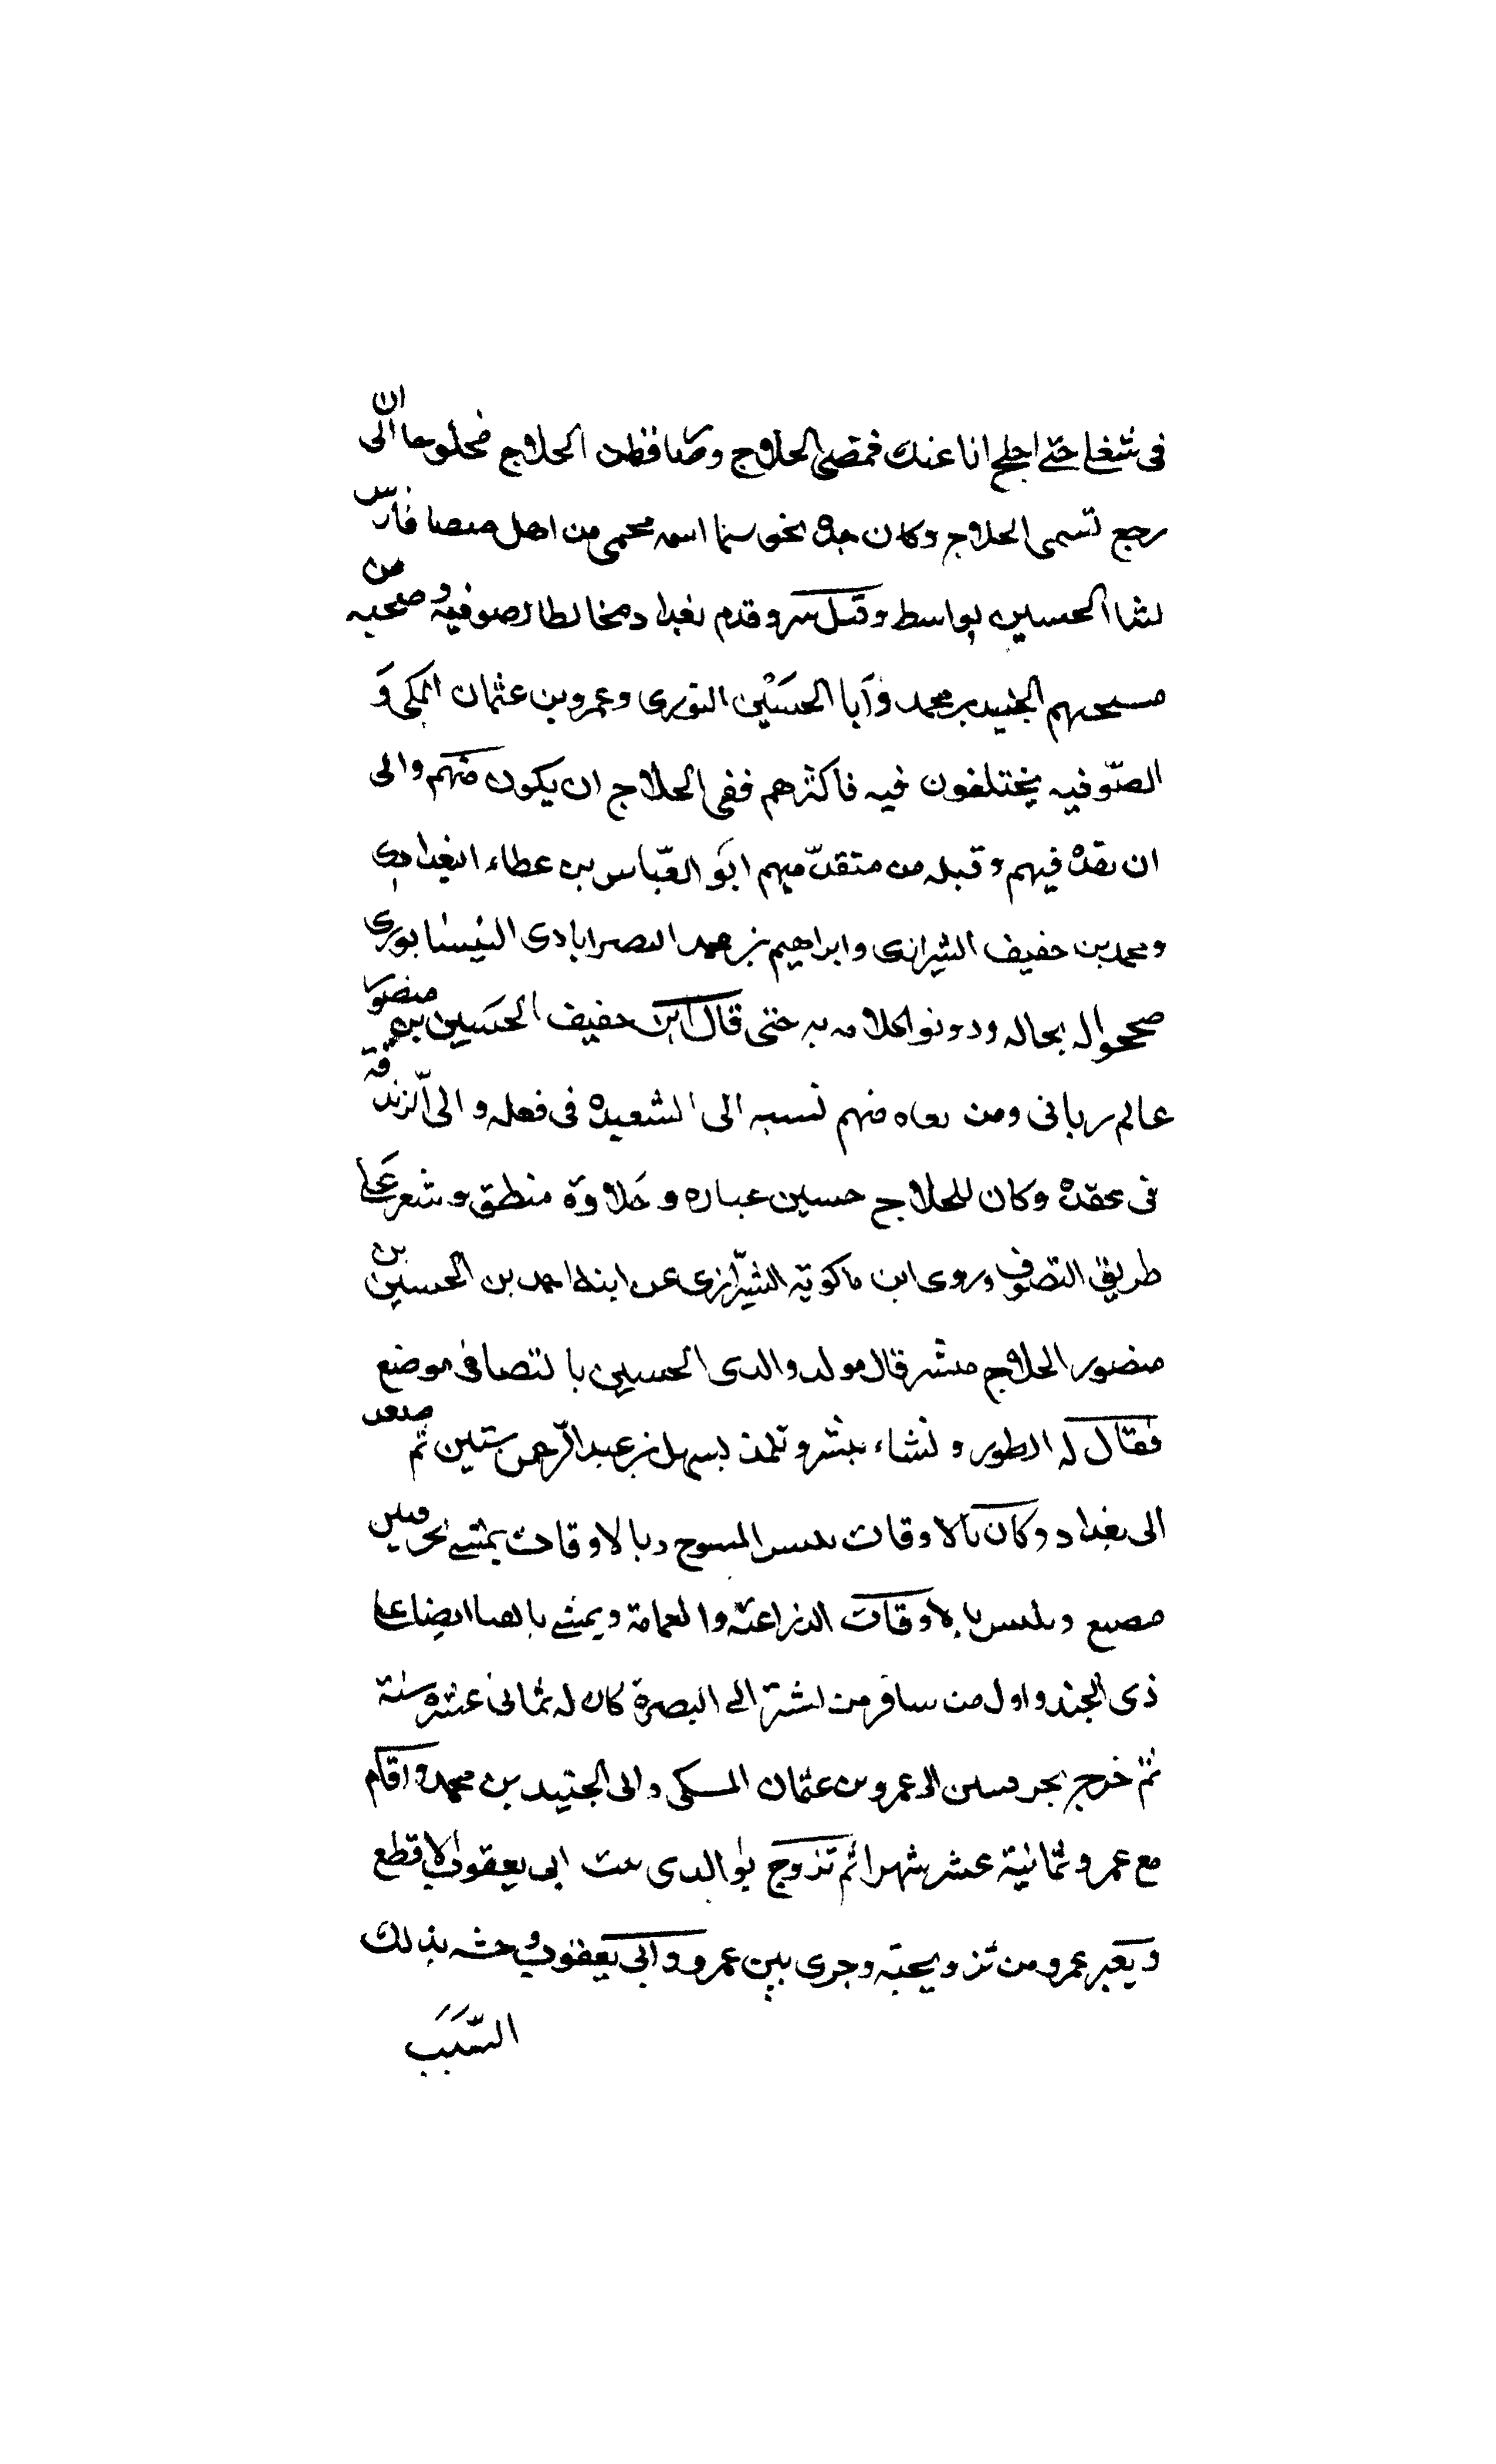 فى شغلى حتى احلج انا عنك فمضى الحلاج وصافقطن الحلاج محلوجا الى ان
رجع تسمى الحلاج وكان جده مجوسيا اسمه محمى من اهل بيضا فارس
نشا الحسين بواسط وقيل بتسترو قدم بغداد مخالطا لصوفيه وصحبه من
مسيحهم الجنيد بن محمد وابا الحسَيْن النورى وعمرو بن عثمان المكى وَ
الصّوفيه يختلفون فيه فاكثرهم ففى الحلاج ان يكون منهم والى
ان يعده فيهم وقبله من متقدّميهم ابَو العّباس بن عطاء البغدادى
ومحمد بن حفيف الشيرازى وابراهيم بن محمد النصرابادى النيسابورى
صححواله بحاله ودونوا كلامه به حتى قال ابن حفيف الحسَين بن منصور
عالم ربانى ومن نفاه منهم نسبه الى الشعبده فى فعله والى الزندقة
فى عقده وكان للحلاج حسين عباره وحَلاوة منطق وشعر عَلى
طريق التصّوف وروى ابن ماكوية الشيّرازى عن ابنه احمد بن الحسين بن
منصور الحلاج مشر قال مولد والدى الحسين بالتصافى موضع
فقال له الطور ونشاء بتشر وتلمذ بسهل بن عبد الرّحمن ستين ثم صعد
الى بغداد وكان بالاوقات يلبس المسوح وبالاوقات يمشى بخرقتين
مصبع ويلبس بالاوقات الدزاعته والعمامة ويمشى بالقبا ايضا على
ذى الجند واول من سافر من تشتر الى البصرة كان له ثمانى عشره سنة
ثمّ خرج بحرقتين الى عمرو بن عثمان المكى والى الجنيد بن محمد واقام
مع عمرو ثمانية عشر شهرا ثم تزوج بوالدى بنت ابى يعقوب الاقطع
ويعير عمرو من تزويجته وجرى بين عمرو وابى يعقوب وحشه بذلك
السّبَبَ